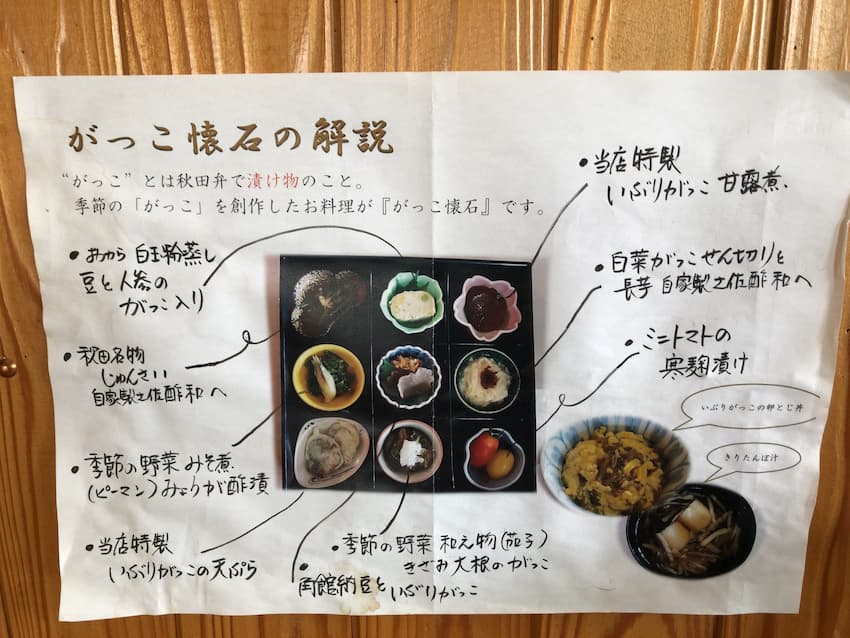 がっこ懐石の解説
“がっこ”とは秋田弁で漬け物のこと。
季節の「がっこ」を創作したお料理が『がっこ懐石』です。
・おから 白玉粉蒸し
豆と人参の
がっこ入り
・秋田名物
じゅんさい
自家製土佐酢和へ
・季節の野菜 みそ煮
(ピーマン)みょうが酢漬
・当店特製
いぶりがっこの天ぷら
・角館納豆と いぶりがっこ
・季節の野菜 和え物(茄子)
きざみ大根のがっこ
・当店特製
いぶりがっこ 甘露煮.
・白菜がっこせん切りと
長芋 自家製土佐酢和へ
・ミニトマトの
寒麹漬け
いぶりがっこの卵とじ丼
きりたんぽ汁